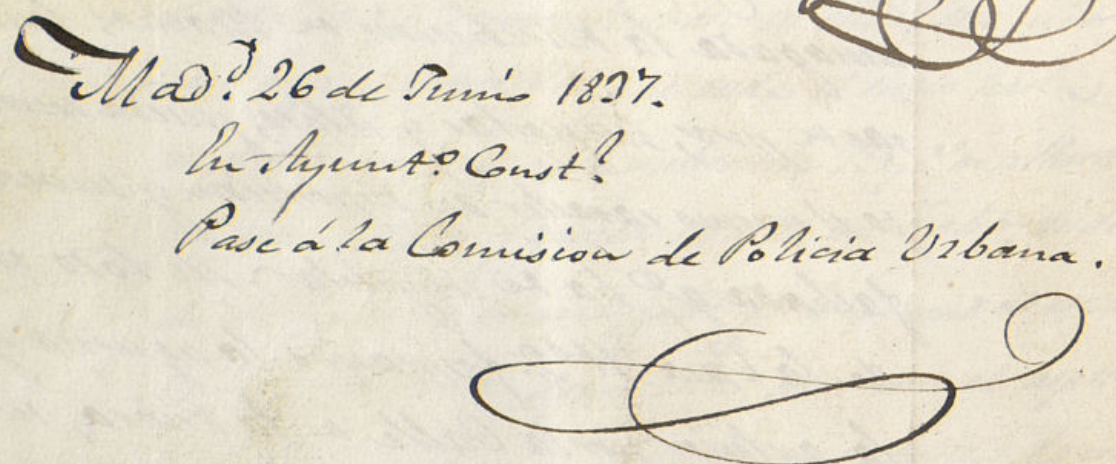 Mad.d 26 de Junio 1837.
En Ayunt.o Const.l
Pase á la Comision de Policia Urbana.